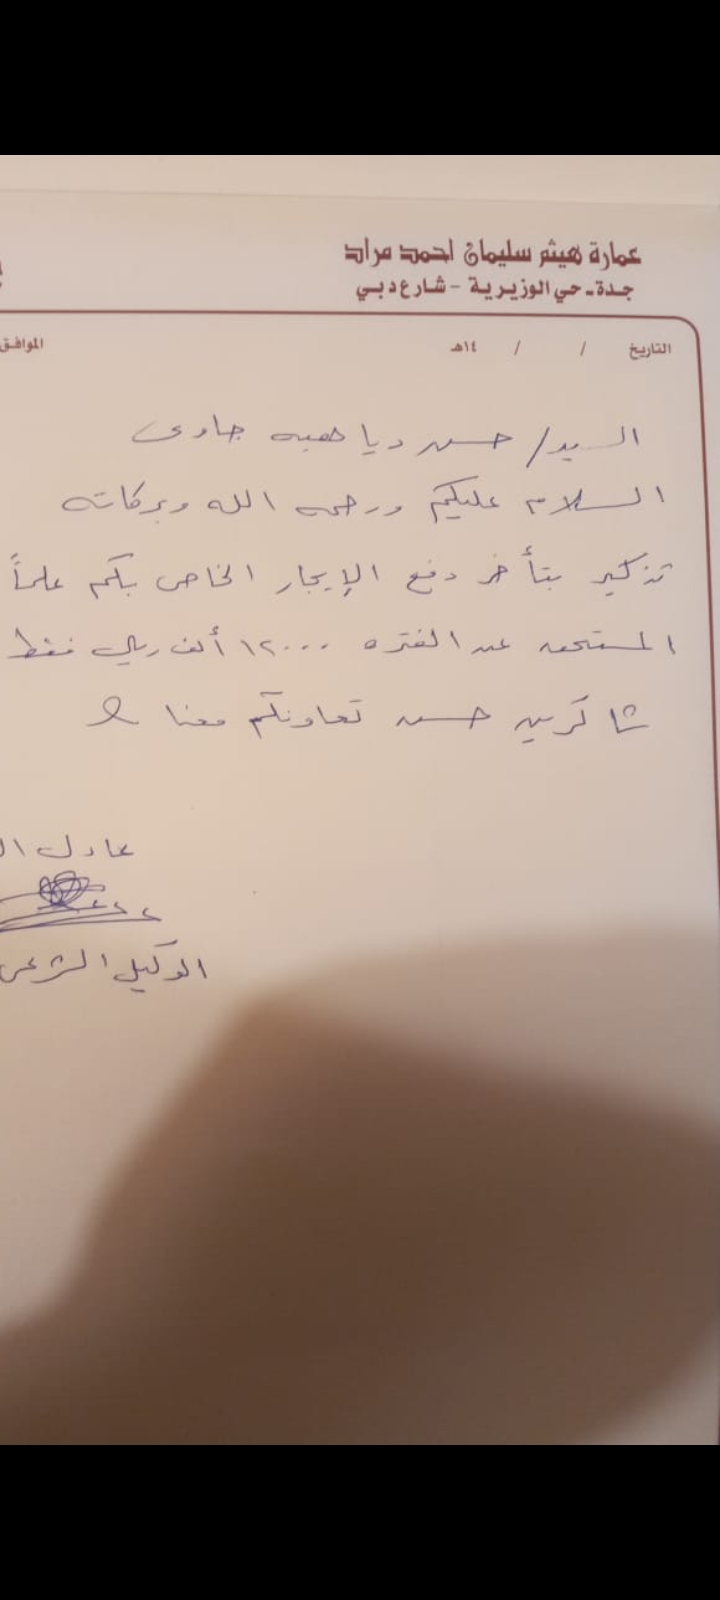 عمارة هيثم سليمان احمد مراد
جدة - حي الوزيرية - شارع دبي
التاريخ / / ١٤هـ الموافق
السيد / حسن ديا هبه جاوى
السلام عليكم ورحمه الله وبركاته
تذكير بتأخر دفع الإيجار الخاص بكم علماً
المستحق عن الفتره ١٢٠٠٠ ألف ريال فقط
شاكرين حسن تعاونكم معنا
عادل
الوكيل الشرعي